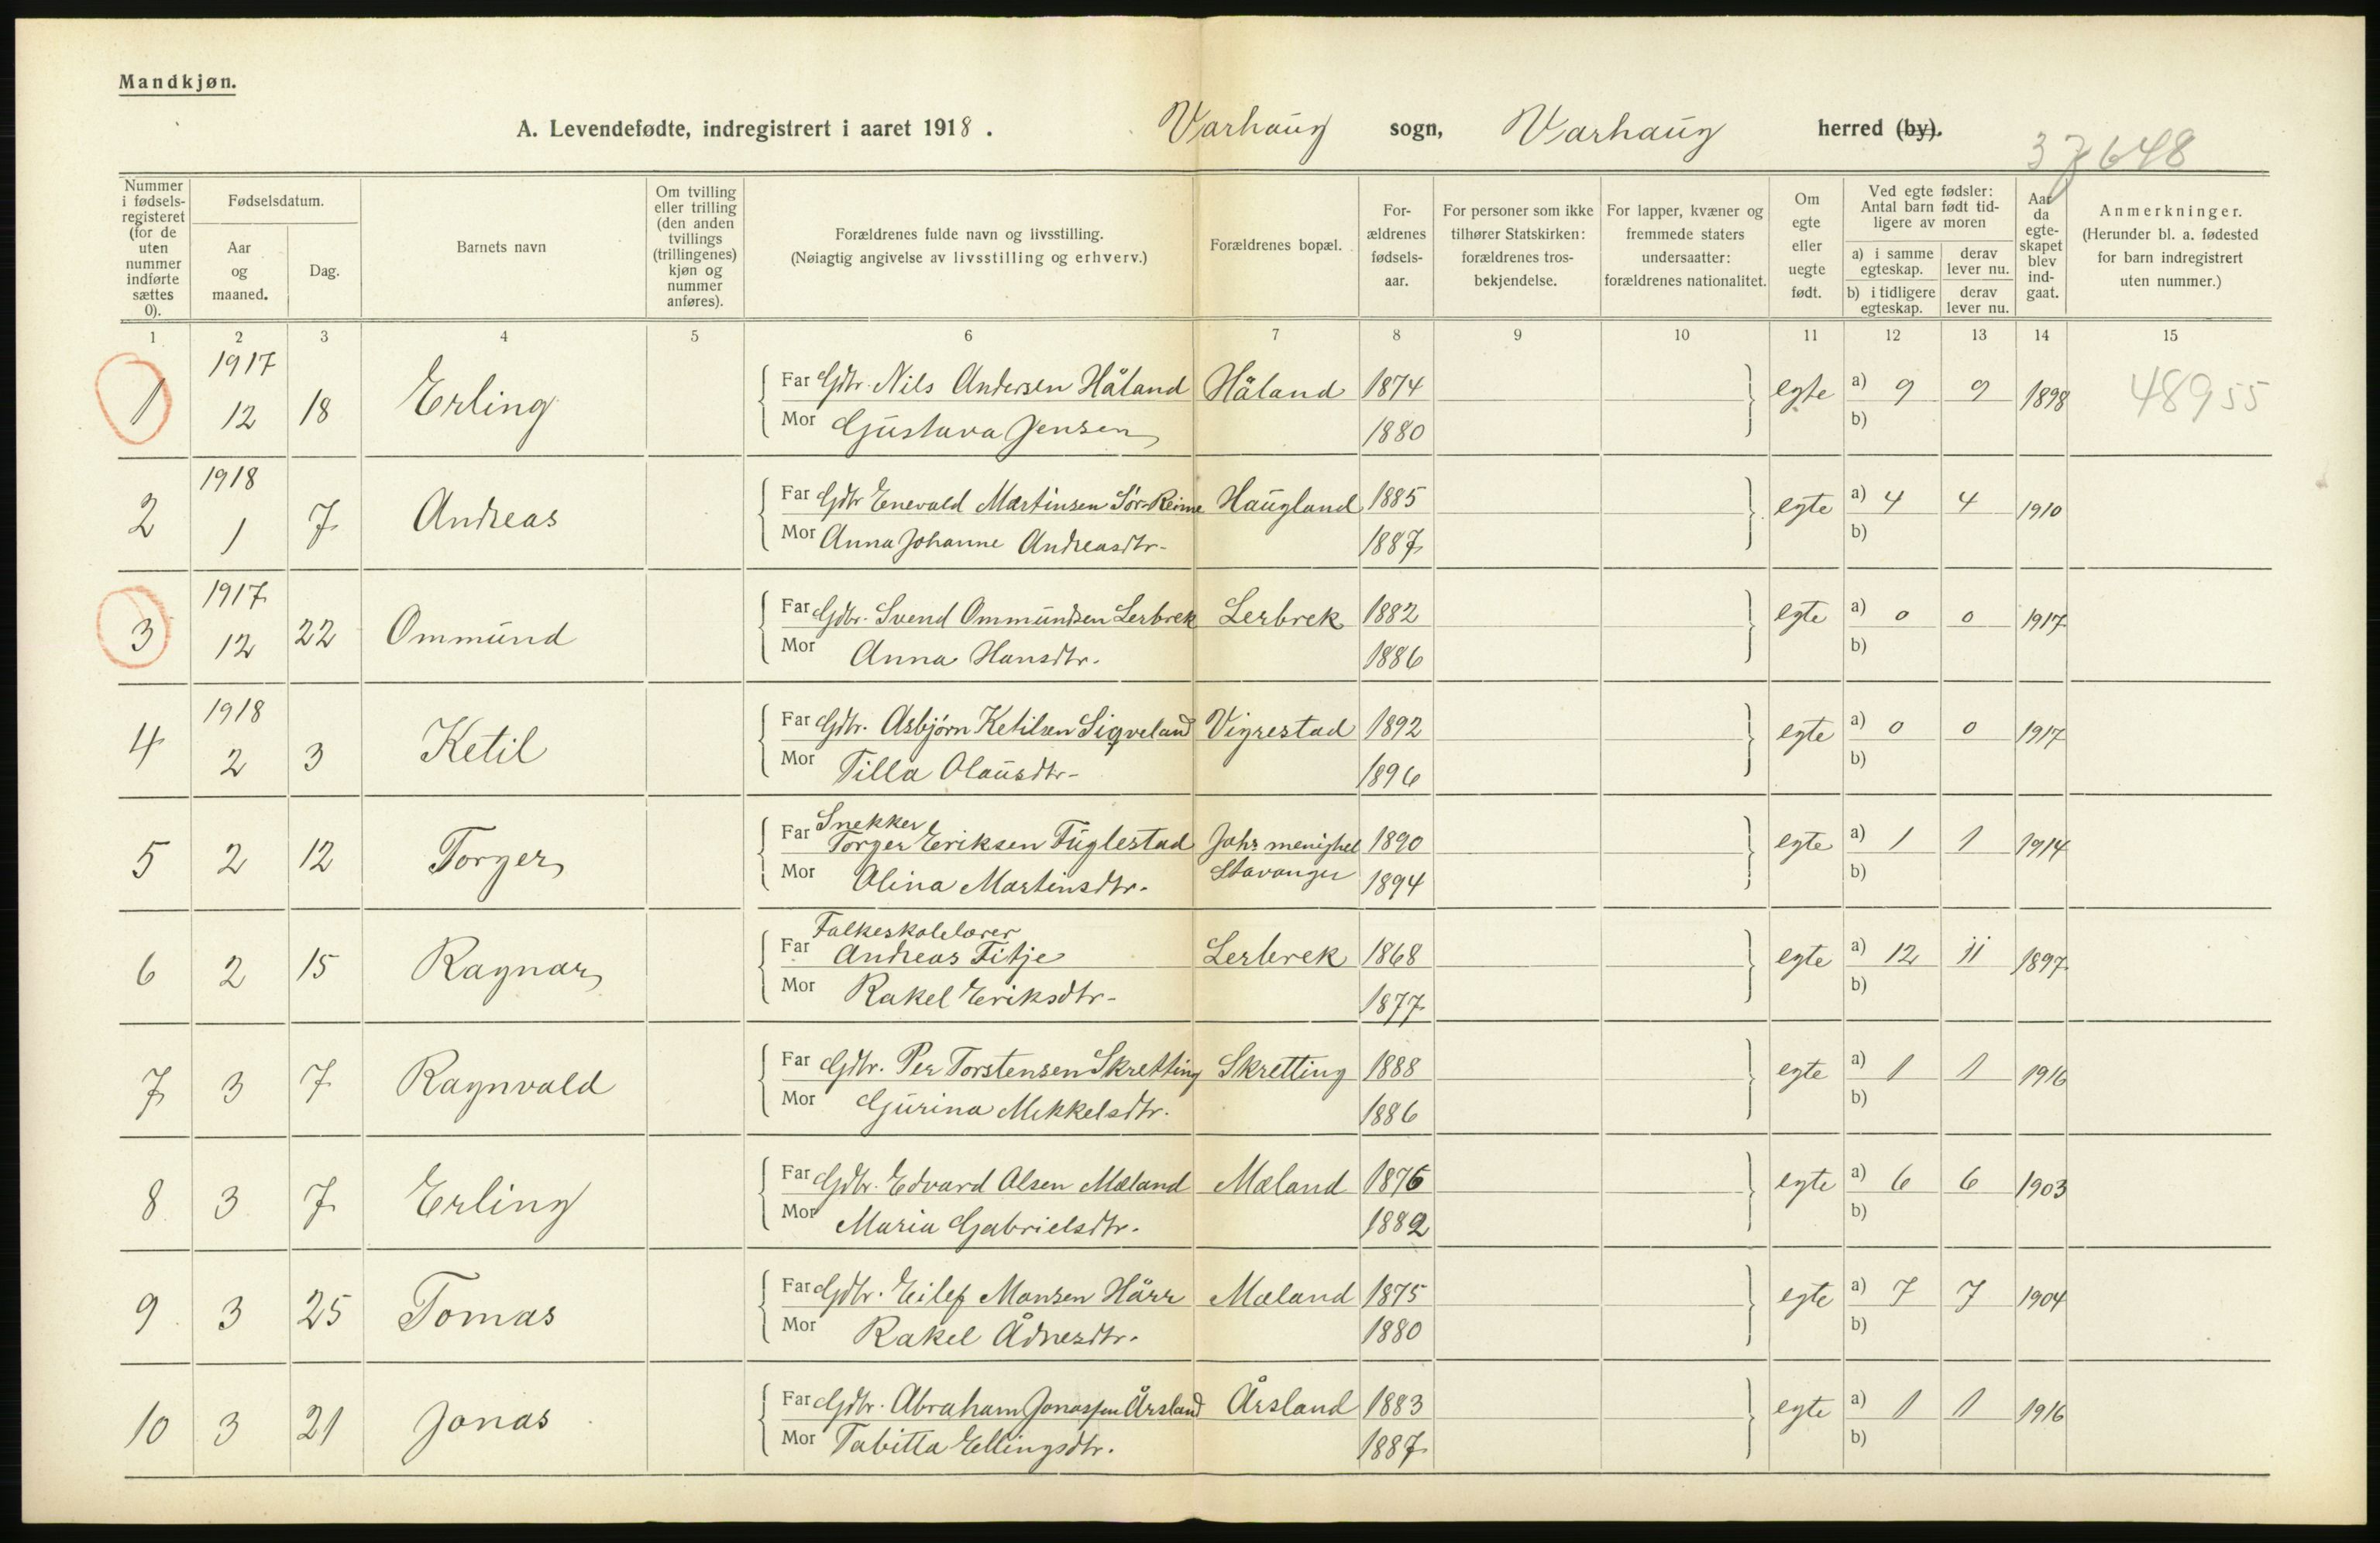 Mandkjøn.
A. Levendefødte, indregistrert i aaret 1918. Varhaug sogn, Varhaug herred (by).
37648
Nummer i fødselsregisteret (for de uten nummer indførte sættes 0).
Fødselsdatum.
Aar og maaned.
Dag.
Barnets navn
Om tvilling eller trilling (den anden tvillings (trillingenes) kjøn og nummer anføres).
Forældrenes fulde navn og livsstilling.
(Nøiagtig angivelse av livsstilling og erhverv.)
Forældrenes bopæl.
For-ældrenes fødsels-aar.
For personer som ikke tilhører Statskirken: forældrenes tros-bekjendelse.
For lapper, kvæner og fremmede staters undersaatter: forældrenes nationalitet.
Om egte eller uegte født.
Ved egte fødsler: Antal barn født tid-ligere av moren
a) i samme egteskap. derav lever nu.
b) i tidligere egteskap. derav lever nu.
Aar da egte-skapet blev ind-gaat.
Anmerkninger.
(Herunder bl. a. fødested for barn indregistrert uten nummer.)
1 2 3 4 5 6 7 8 9 10 11 12 13 14 15
1917
1 12 18 Erling Far Gdbr. Nils Andersen Håland Håland 1874 egte a) 9 9 1898 48955
Mor Gustava Jensen 1880 b)
1918
2 1 7 Andreas Far Gdbr Enevald Martinsen Sør-Reime Haugland 1885 egte a) 4 4 1910
Mor Anna Johanne Andreasdtr. 1887 b)
1917
3 12 22 Ommund Far Gdbr. Svend Ommundsen Lerbrek Lerbrek 1882 egte a) 0 0 1917
Mor Anna Hansdtr. 1886 b)
1918
4 2 3 Ketil Far Gdbr. Asbjørn Ketilsen Sigveland Vigrestad 1892 egte a) 0 0 1917
Mor Tilla Olausdtr. 1896 b)
Snekker
5 2 12 Torger Far Torger Eriksen Fuglestad Johs menighet 1890 egte a) 1 1 1914
Mor Olina Martinsdtr. Stavanger 1894 b)
Folkeskolelærer
6 2 15 Ragnar Far Andreas Fitje Lerbrek 1868 egte a) 12 11 1897
Mor Rakel Eriksdtr. 1877 b)
7 3 7 Ragnvald Far Gdbr. Per Torstensen Skretting Skretting 1888 egte a) 1 1 1916
Mor Gurina Mikkelsdtr. 1886 b)
8 3 7 Erling Far Gdbr. Edvard Olsen Mæland Mæland 1876 egte a) 6 6 1903
Mor Maria Gabrielsdtr. 1882 b)
9 3 25 Tomas Far Gdbr. Eilef Monsen Hårr Mæland 1875 egte a) 7 7 1904
Mor Rakel Ådnesdtr. 1880 b)
10 3 21 Jonas Far Gdbr. Abraham Jonassen Årsland Årsland 1883 egte a) 1 1 1916
Mor Tabitta Ellingsdtr. 1887 b)